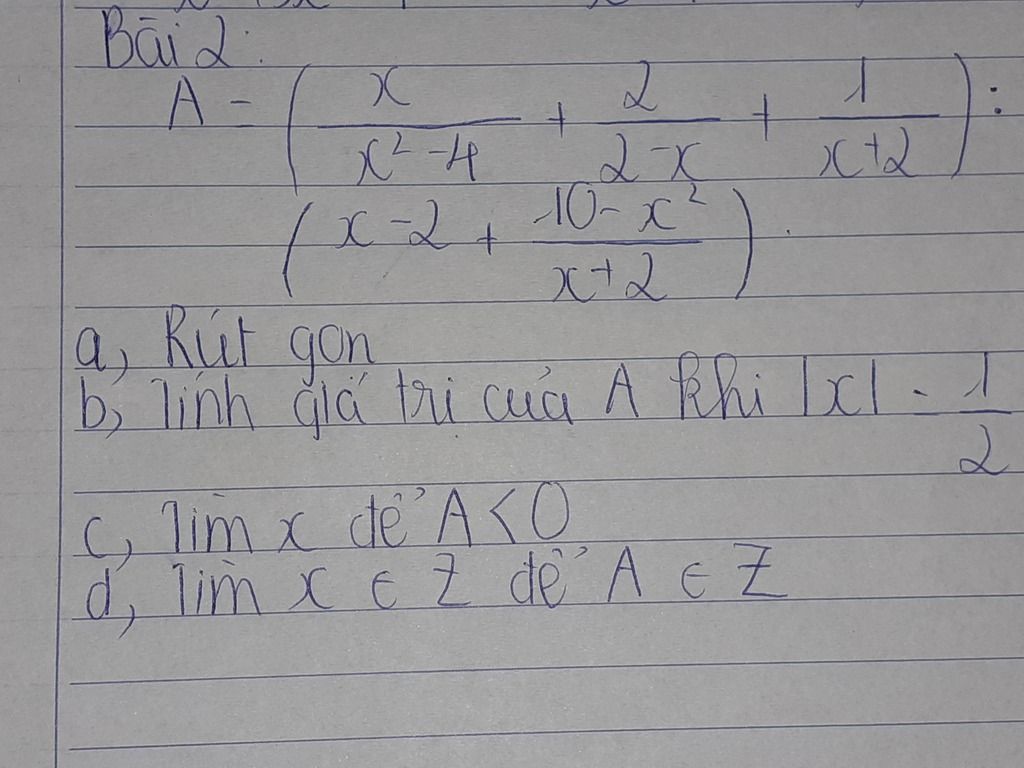 Bài 2:
A = ( x / x² - 4 + 2 / 2 - x + 1 / x + 2 ) :
( x - 2 + 10 - x² / x + 2 ).
a, Rút gọn
b, Tính giá trị của A khi |x| = 1/2
c, Tìm x để A < 0
d, Tìm x ∈ Z để A ∈ Z